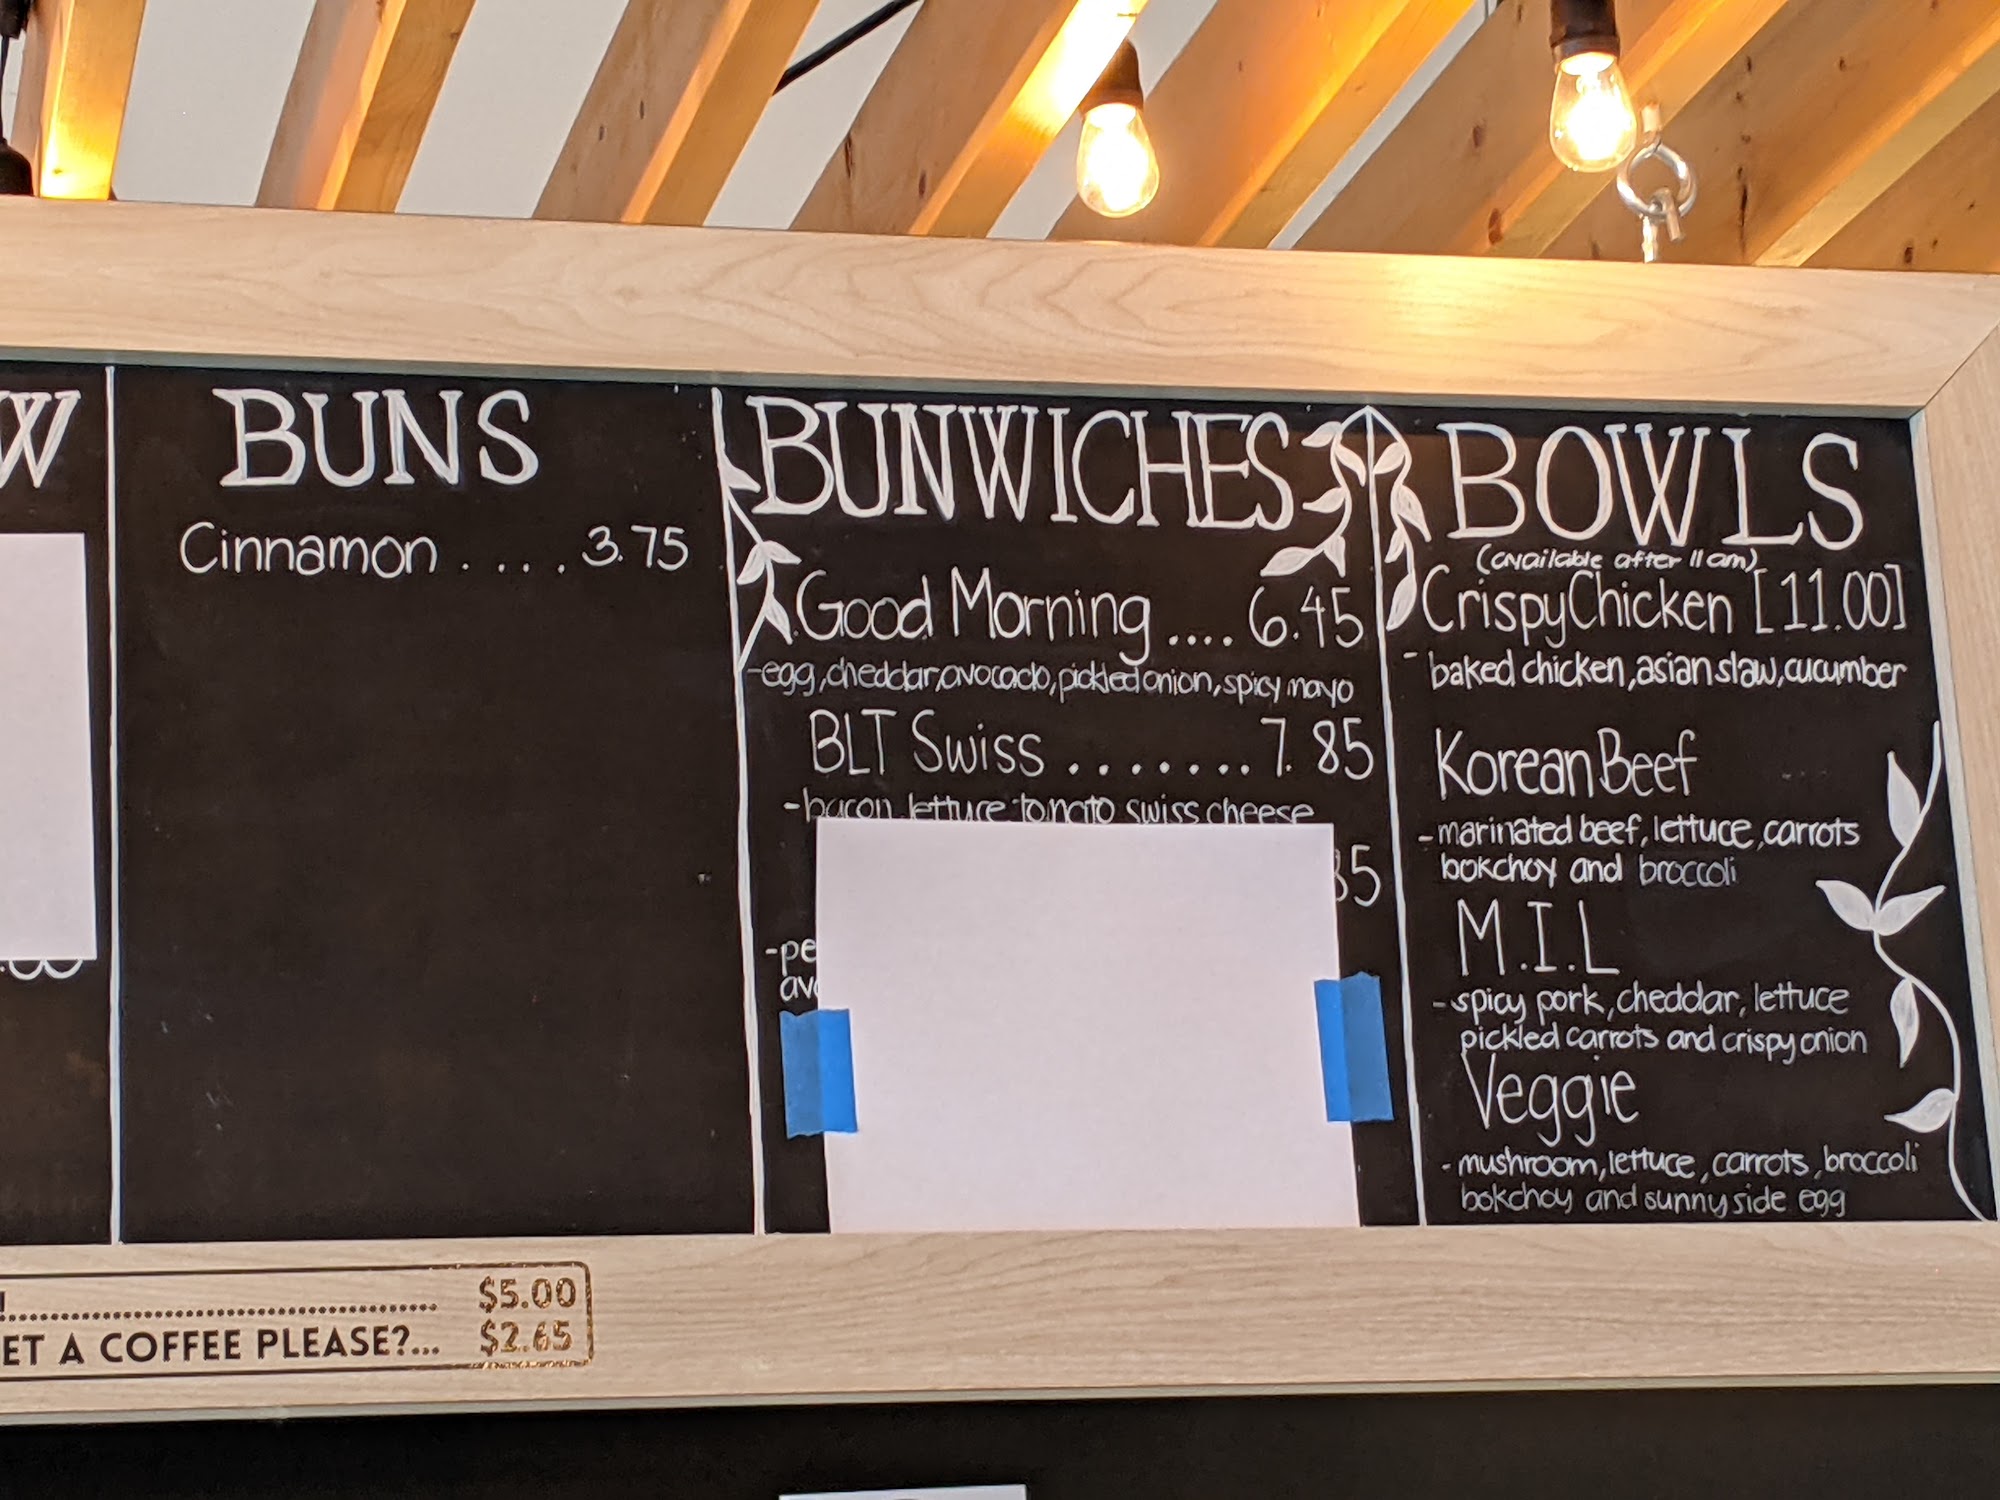 W
BUNS
Cinnamon .... 3.75
BUNWICHES
Good Morning .... 6.45
-egg, cheddar, avocado, pickled onion, spicy mayo
BLT Swiss ....... 7.85
-bacon lettuce tomato swiss cheese
85
-pe
avo
BOWLS
(available after 11am)
Crispy Chicken [11.00]
- baked chicken, asian slaw, cucumber
Korean Beef
-marinated beef, lettuce, carrots
bokchoy and broccoli
M.I.L
-spicy pork, cheddar, lettuce
pickled carrots and crispy onion
Veggie
-mushroom, lettuce, carrots, broccoli
bokchoy and sunny side egg
!................................ $5.00
ET A COFFEE PLEASE?... $2.65